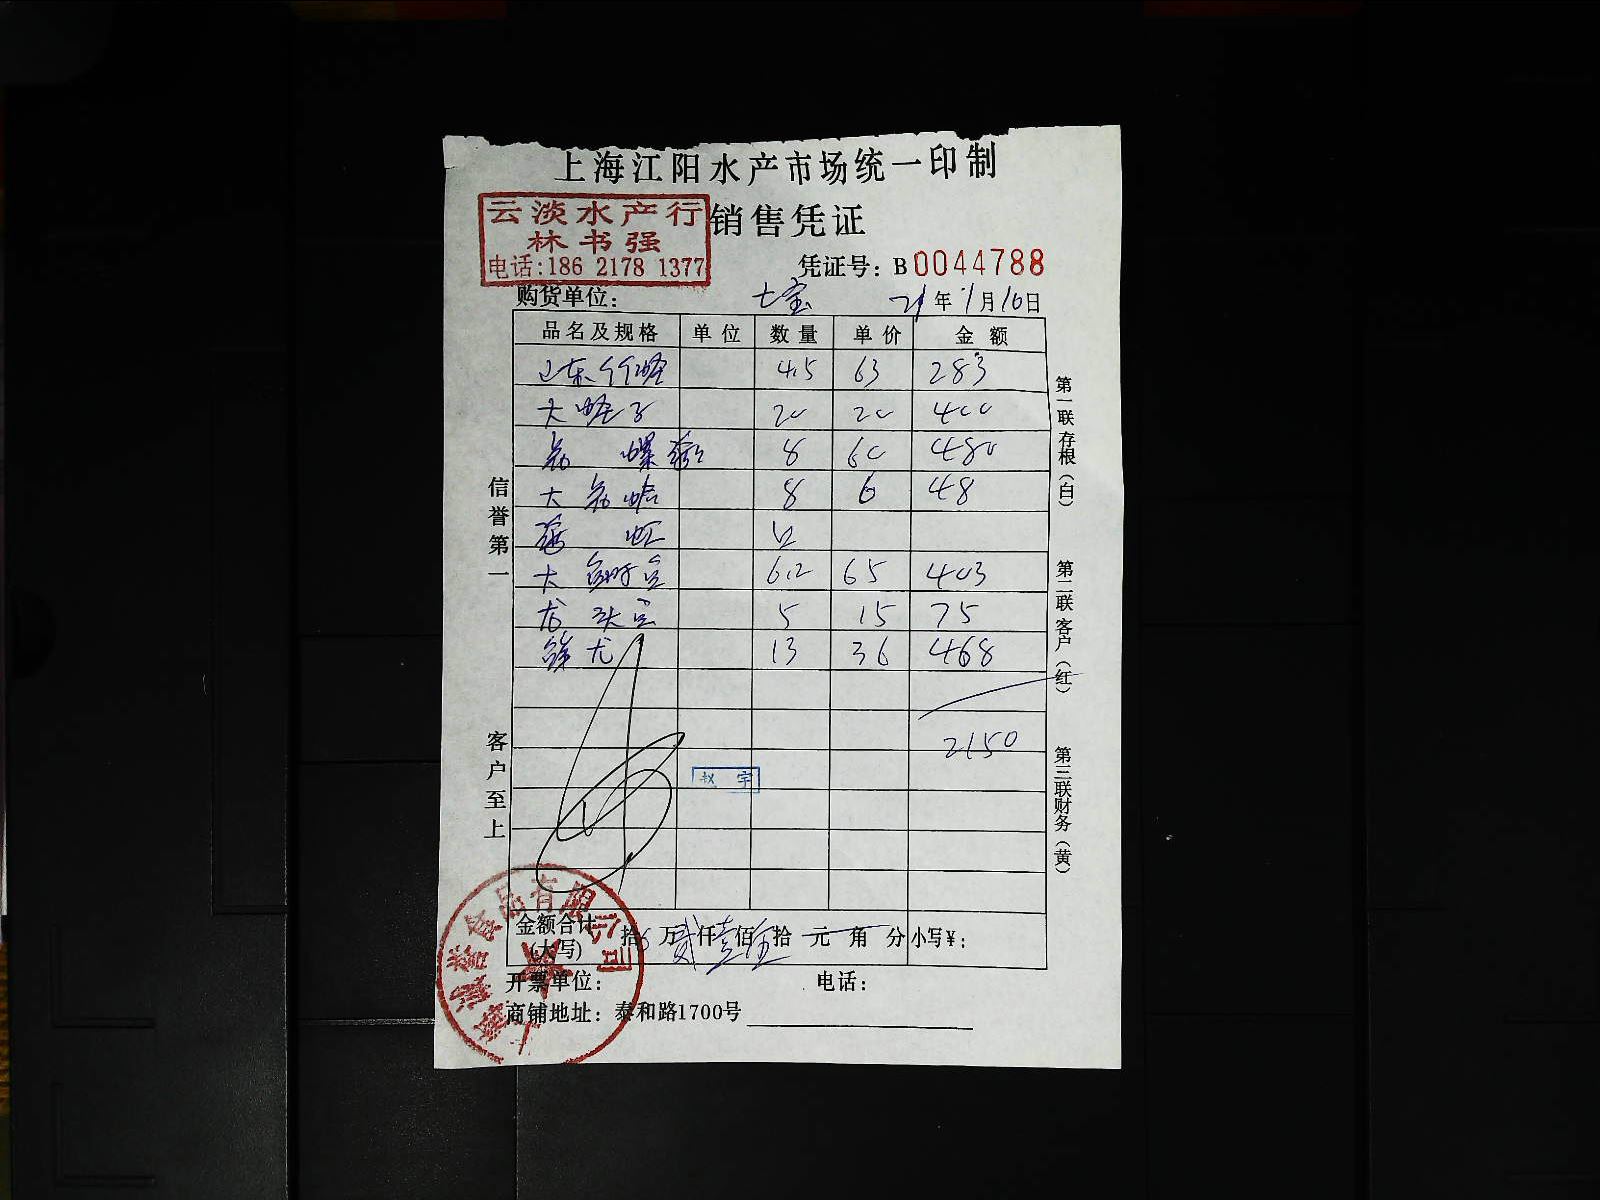 上海江阳水产市场统一印制
云淡水产行
林书强
电话:186 2178 1377
销售凭证
凭证号: B 0044788
购货单位: 七宝 21年 1月 10日
品名及规格 单位 数量 单价 金额
山东竹蛏 4.5 63 283
大蛏子 20 20 400
8 60 480
大 8 6 48
大 6.2 65 403
龙头 5 15 75
13 36 468
2150
赵宇
信誉第一
客户至上
第一联存根(白)
第二联客户(红)
第三联财务(黄)
金额合计(大写) 拾 万 贰仟 壹佰 伍拾 元 角 分 小写¥:
开票单位: 电话:
商铺地址: 泰和路1700号
上海诚誉食品有限公司